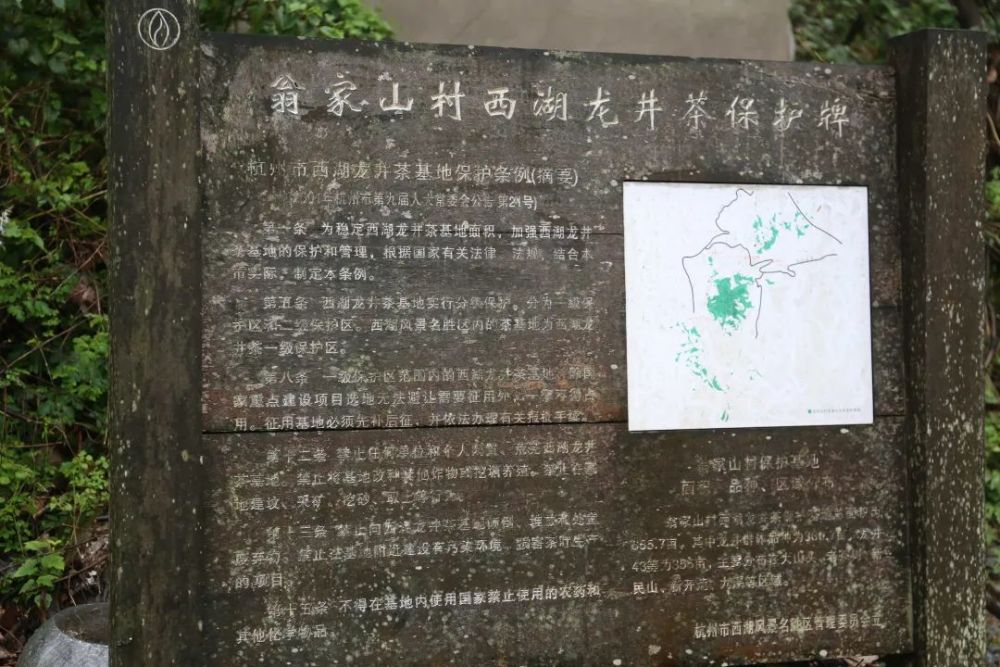 翁家山村西湖龙井茶保护牌
杭州市西湖龙井茶基地保护条例(摘要)
年杭州市第九届人大常委会公告第21号)
第一条 为稳定西湖龙井茶基地面积，加强西湖龙井
茶基地的保护和管理，根据国家有关法律、法规，结合本
市实际，制定本条例。
第五条 西湖龙井茶基地实行分级保护，分为一级保
护区和二级保护区。西湖风景名胜区内的茶基地为西湖龙
井茶一级保护区。
第八条 一级保护区范围内的西湖龙井茶基地，除国
家重点建设项目选地无法避让需要征用外，一律不得占
用。征用基地必须先补后征，并依法办理有关报批手续。
第十二条 禁止任何单位和个人 荒芜西湖龙井
茶基地，禁止将基地改种其他作物或挖塘养殖。禁止在基
地建坟、采矿、挖砂、取土等行为。
第十三条 禁止向西湖龙井茶基地倾倒、堆放
废弃物，禁止在基地附近建设有污染环境、损害茶叶生产
的项目。
第十五条 不得在基地内使用国家禁止使用的农药和
其他化学物品。
翁家山村保护基地
面积、品种、区域
翁家山村西湖龙井茶
亩，其中龙井群体
43 为358亩，
民山、新开范、 等区域。
杭州市西湖风景名胜区管理委员会立